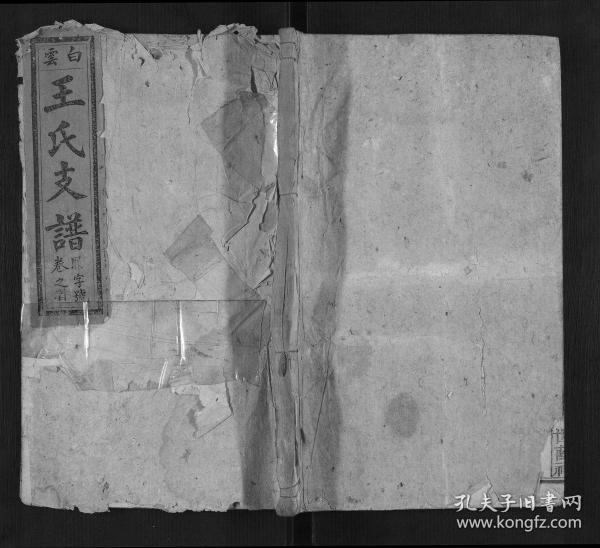 白雲
王氏支譜
字號
卷之首
孔夫子旧书网
www.kongfz.com